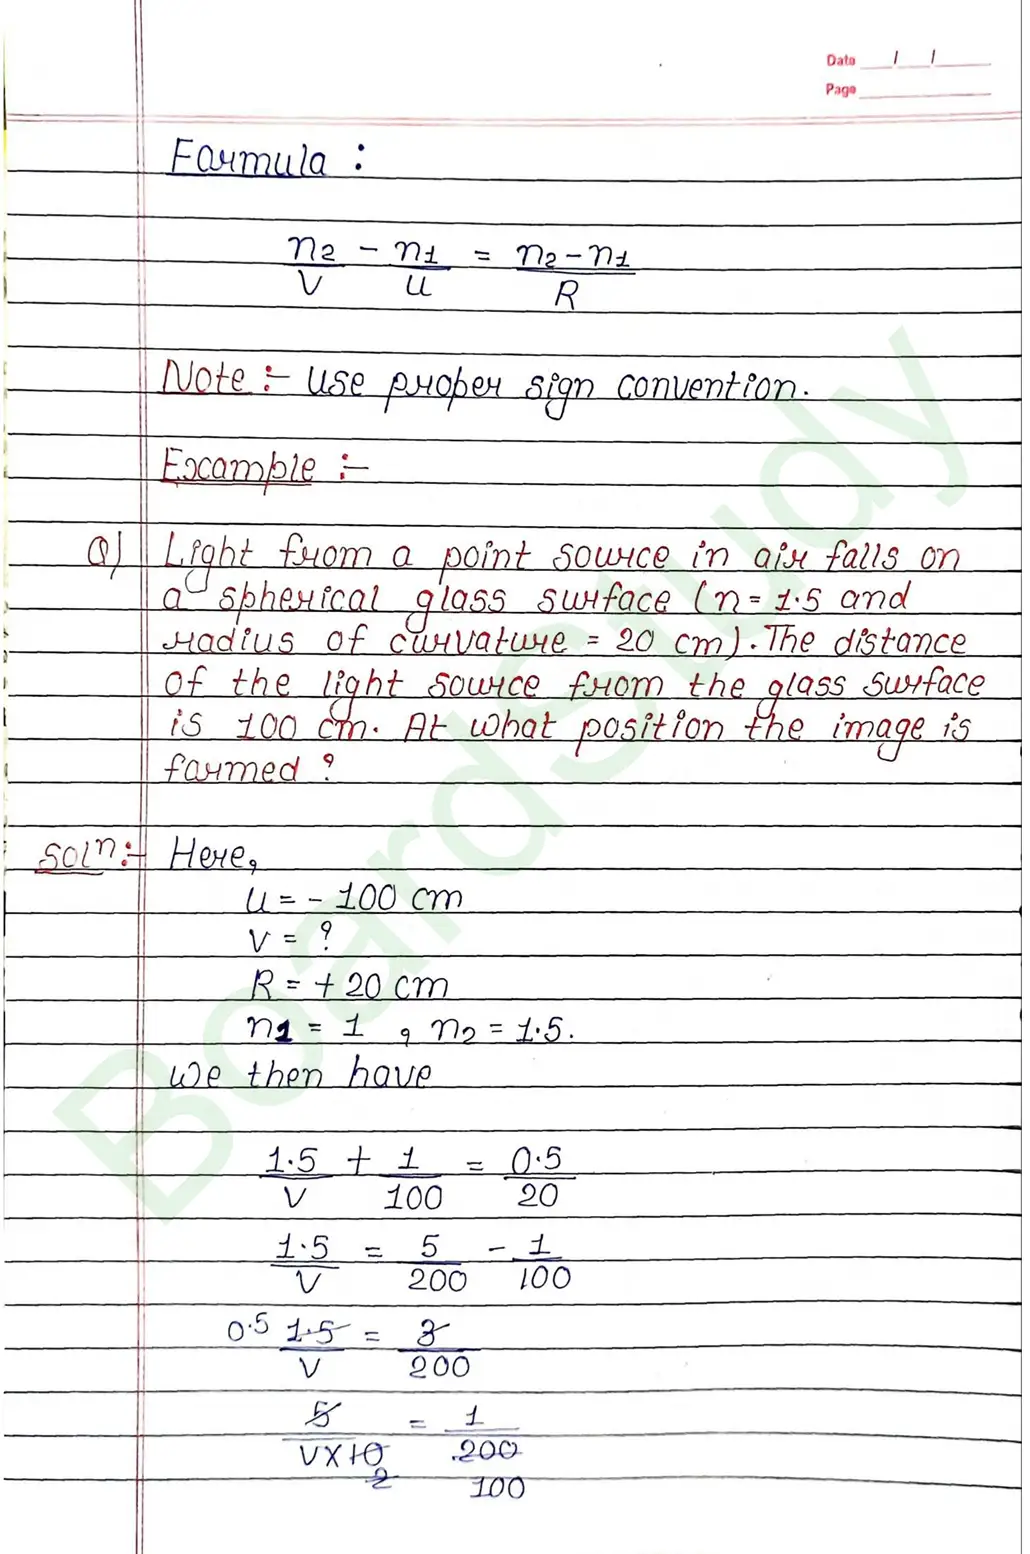 Date / /
Page
Formula :
n2/V - n1/u = n2-n1/R
Note :- Use proper sign convention.
Example :-
Q) Light from a point source in air falls on
a spherical glass surface (n = 1.5 and
radius of curvature = 20 cm). The distance
of the light source from the glass surface
is 100 cm. At what position the image is
formed ?
Soln :- Here,
u = - 100 cm
V = ?
R = + 20 cm
n1 = 1 , n2 = 1.5.
We then have
1.5/V + 1/100 = 0.5/20
1.5/V = 5/200 - 1/100
0.5 1.5/V = 3/200
5/V×10 2 = 1/200 100
BoardStudy